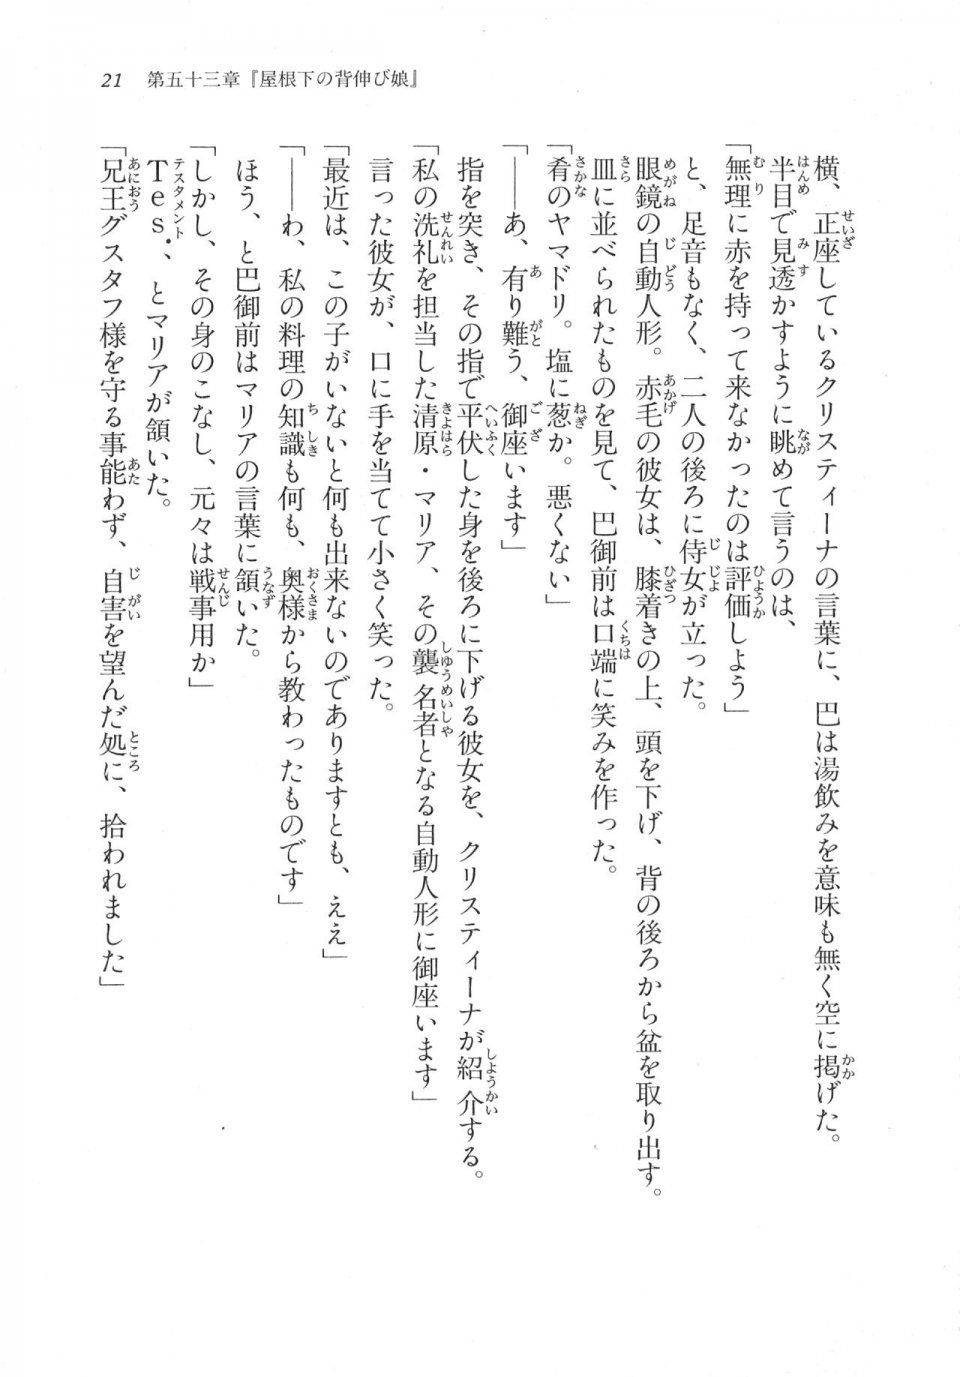 21　第五十三章『屋根下の背伸び娘』
横、正座しているクリスティーナの言葉に、巴は湯飲みを意味も無く空に掲げた。
半目で見透かすように眺めて言うのは、
「無理に赤を持って来なかったのは評価しよう」
と、足音もなく、二人の後ろに侍女が立った。
眼鏡の自動人形。赤毛の彼女は、膝着きの上、頭を下げ、背の後ろから盆を取り出す。
皿に並べられたものを見て、巴御前は口端に笑みを作った。
「肴のヤマドリ。塩に葱か。悪くない」
「――あ、有り難う、御座います」
指を突き、その指で平伏した身を後ろに下げる彼女を、クリスティーナが紹介する。
「私の洗礼を担当した清原・マリア、その襲名者となる自動人形に御座います」
言った彼女が、口に手を当てて小さく笑った。
「最近は、この子がいないと何も出来ないのでありますとも、ええ」
「――わ、私の料理の知識も何も、奥様から教わったものです」
ほう、と巴御前はマリアの言葉に頷いた。
「しかし、その身のこなし、元々は戦事用か」
Tes.、とマリアが頷いた。
「兄王グスタフ様を守る事能わず、自害を望んだ処に、拾われました」